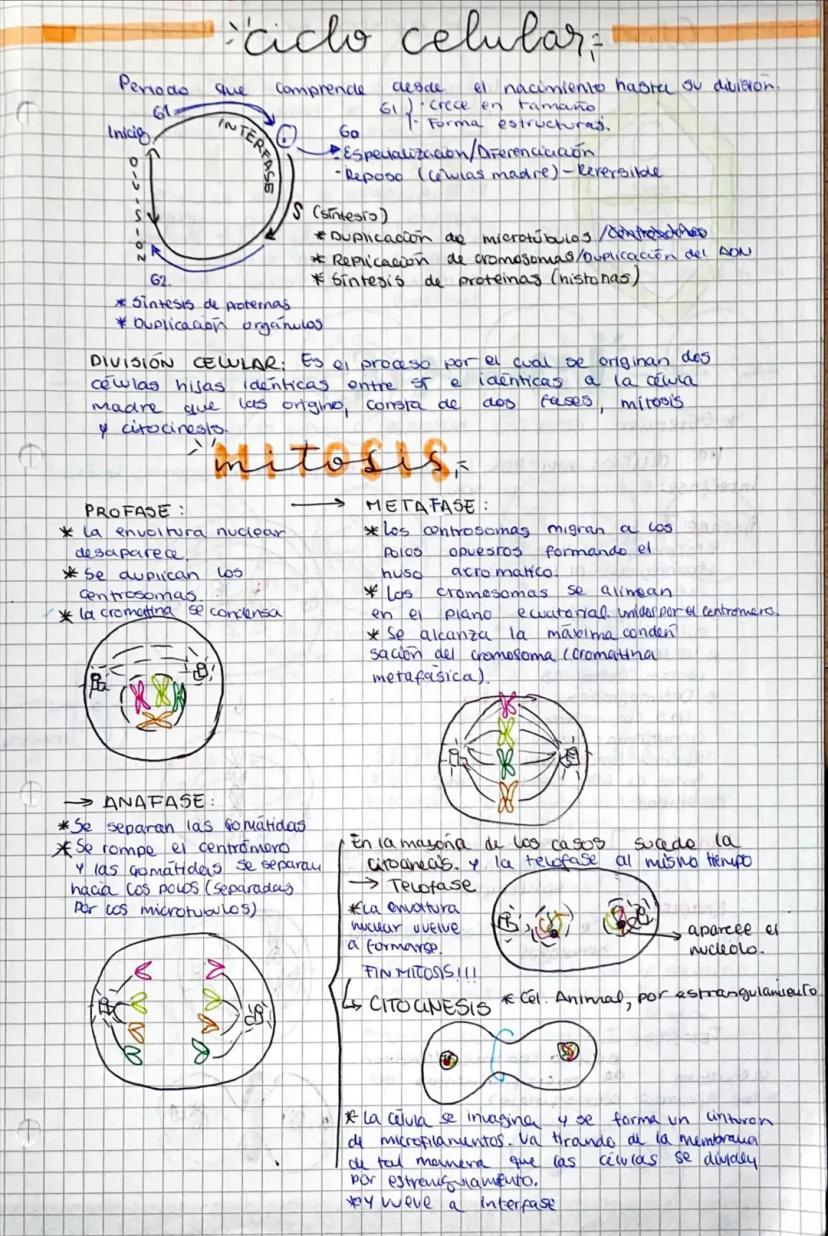 ciclo celular
Periodo que comprende desde el nacimiento hasta su división.
G1
Inicio
INTERFASE
DIVISION
G1 · Crece en tamaño
· Forma estructuras.
G0
- Especialización/Diferenciación
- Reposo (células madre) - Reversible
S (síntesis)
* Duplicación de microtúbulos /
* Replicación de cromosomas/Duplicación del ADN
* Síntesis de proteínas (histonas)
G2.
* Síntesis de proteínas
* Duplicación orgánulos
DIVISIÓN CELULAR: Es el proceso por el cual se originan dos
células hijas idénticas entre sí e idénticas a la célula
madre que las origino, consta de dos fases, mitosis
y citocinesis.
MITOSIS
mitosis
PROFASE:
* La envoltura nuclear
desaparece
* Se duplican los
centrosomas.
* la cromatina se condensa
→ METAFASE:
* Los centrosomas migran a los
Polos opuestos formando el
huso acromatico.
* Los cromosomas se alinean
en el plano ecuatorial unidos por el centromero.
* Se alcanza la máxima conden
sación del cromosoma (cromatina
metafásica).
→ ANAFASE:
* Se separan las cromátidas
* Se rompe el centrómero
y las cromátidas se separan
hacia los polos (separadas
Por los microtubulos)
En la mayoría de los casos sucede la
citocinesis. y la telofase al mismo tiempo
→ Telofase
* La envoltura
nuclear vuelve
a formarse.
FIN MITOSIS!!!
→ aparece el
nucleolo.
↳ CITOCINESIS * Cél. Animal, por estrangulamiento
* La célula se invagina y se forma un cinturon
de microfilamentos. Va tirando de la membrana
de tal manera que las células se dividen
por estrangulamiento.
* y vuelve a interfase